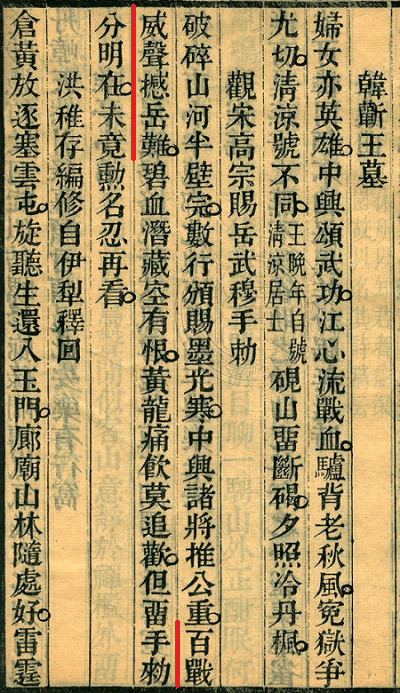 韓蘄王墓
婦女亦英雄。中興頌武功。江心流戰血驢背老秋風。冤獄爭
尤切。清涼號不同。王晚年自號清涼居士硯山畱斷碣。夕照冷丹楓。
觀宋高宗賜岳武穆手勅
破碎山河半壁完。數行頒賜墨光寒。中興諸將推公重。百戰
威聲撼岳難。碧血潛藏空有恨。黃龍痛飲莫追歡。但畱手勅
分明在。未竟勲名忍再看。
洪稚存編修自伊犁釋回
倉黃放逐塞雲屯。旋聽生還入玉門。廊廟山林隨處好。雷霆